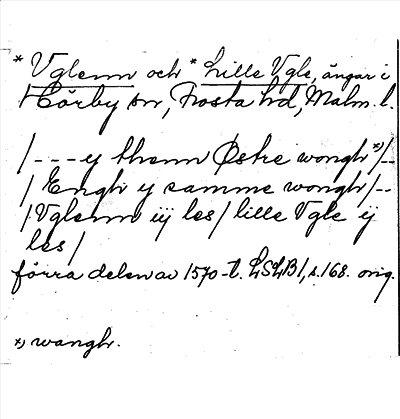 * Vglenn och * Lille Vgle, ängar i
Hörby sn, Frosta hd, Malm. l.
/--- y thenn Østre wongh *)/--
/ Engh y samme wongh/--
/ Vglenn iij les/ lille Vgle ij
les/
förra delen av 1570-t. LSLB 1, s. 168. orig.
*) wangh.